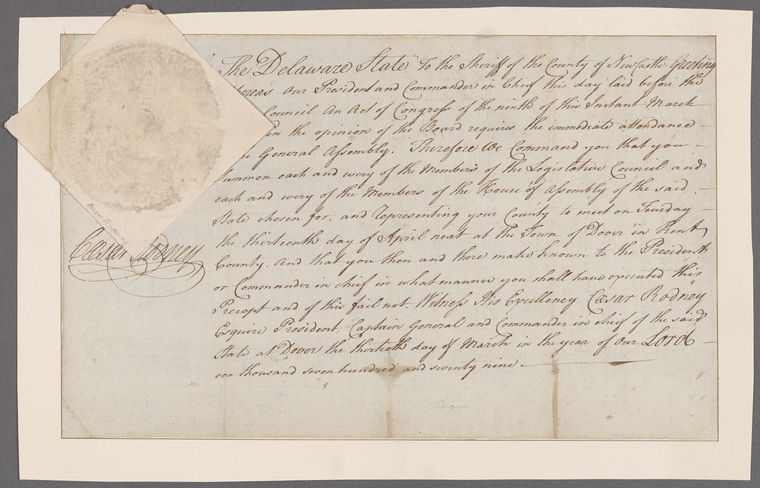 The Delaware State To the Sheriff of the County of Newcastle Greeting
Whereas Our President and Commander in Chief this day laid before the
Council An Act of Congress of the ninth of this Instant March
in the opinion of the Board requires the immediate attendance
General Assembly. Therefore We Command you that you
Summon each and every of the Members of the Legislative Council and
each and every of the Members of the House of Assembly of the said
State chosen for, and representing your County to meet on Tuesday
the thirteenth day of April next at the Town of Dover in Kent
County. And that you then and there make known to the President
or Commander in chief in what manner you shall have executed this
Precept and of this fail not. Witness His Excellency Cæsar Rodney
Esquire President, Captain General and Commander in chief of the said
State at Dover the thirtieth day of March in the year of Our Lord
one thousand seven hundred and seventy nine.
Cæsar Rodney